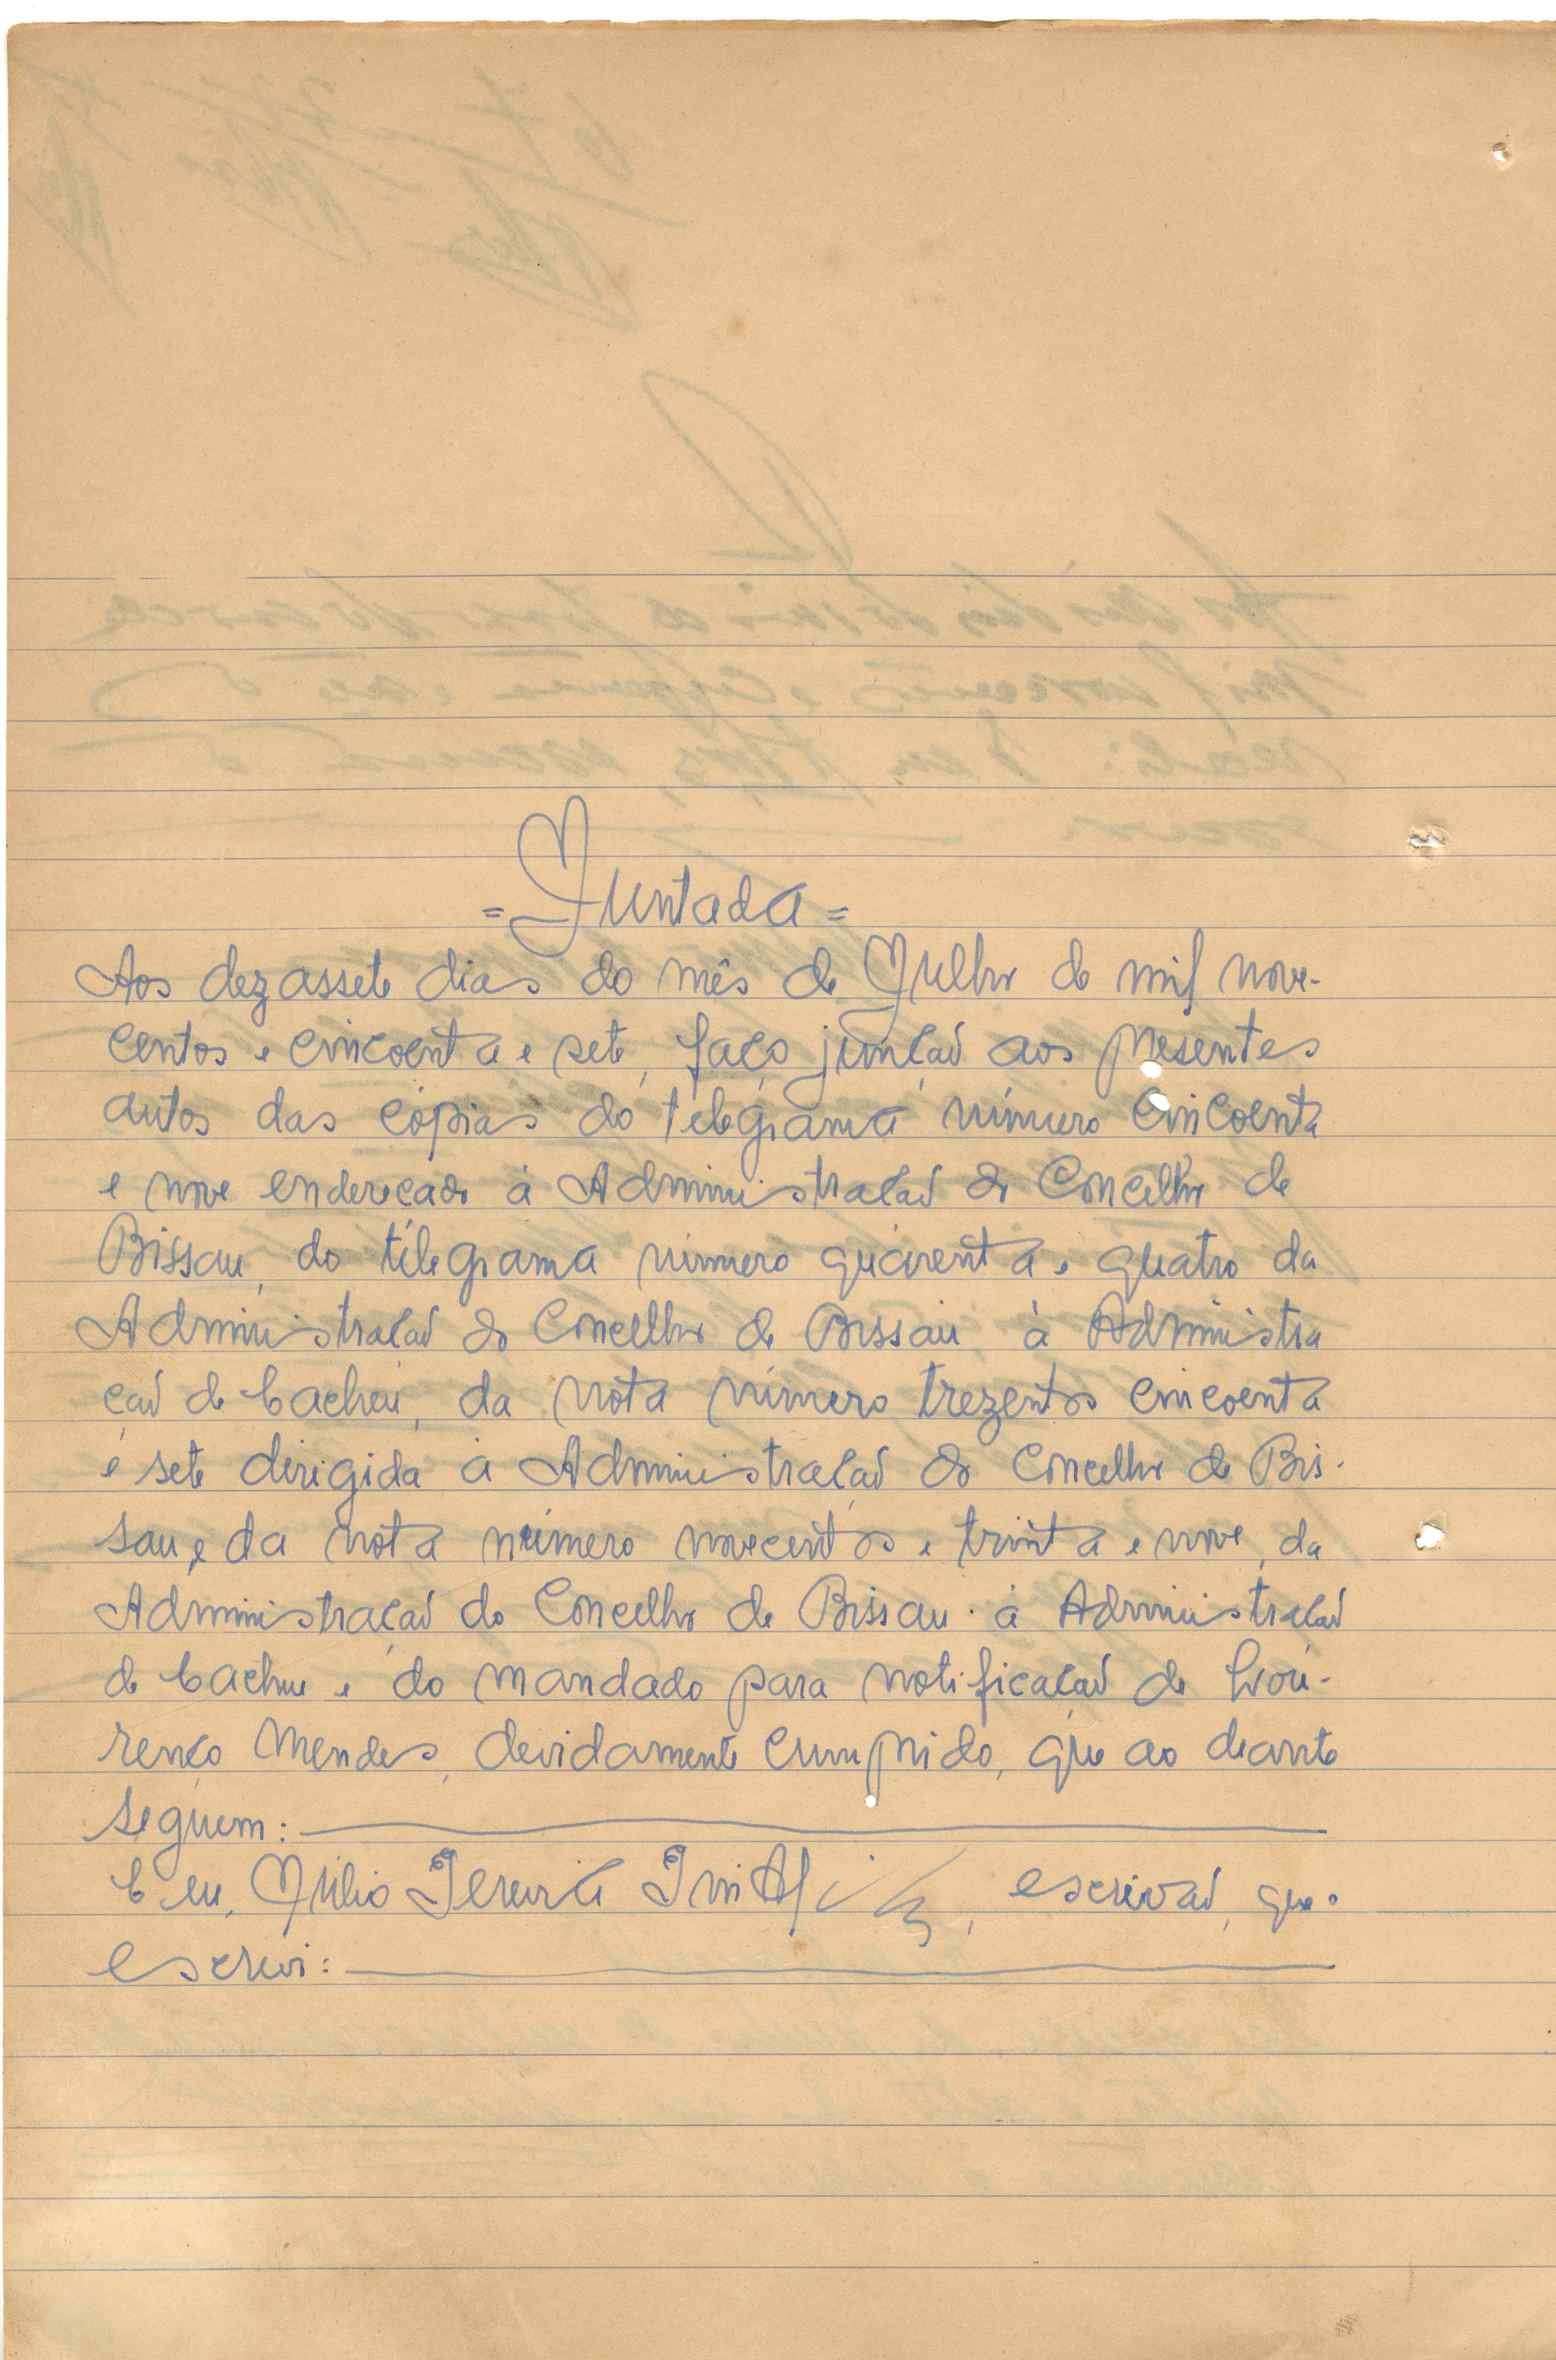 = Juntada =
Aos dezassete dias do mês de Julho de mil nove-
centos e cincoenta e sete, faço junção aos presentes
autos das cópias do telegrama número cincoenta
e nove endereçado à Administração do Concelho de
Bissau, do telegrama número quarenta e quatro da
Administração do Concelho de Bissau à Administra
ção de Cacheu, da nota número trezentos cincoenta
e sete dirigida à Administração do Concelho de Bis-
sau, e da nota número novecentos e trinta e nove, da
Administração do Concelho de Bissau à Administração
de Cacheu e do mandado para notificação de Lou-
renço Mendes, devidamente cumprido, que ao deante
seguem:
E eu, Júlio Pereira, escrivão, que o
escrevi: